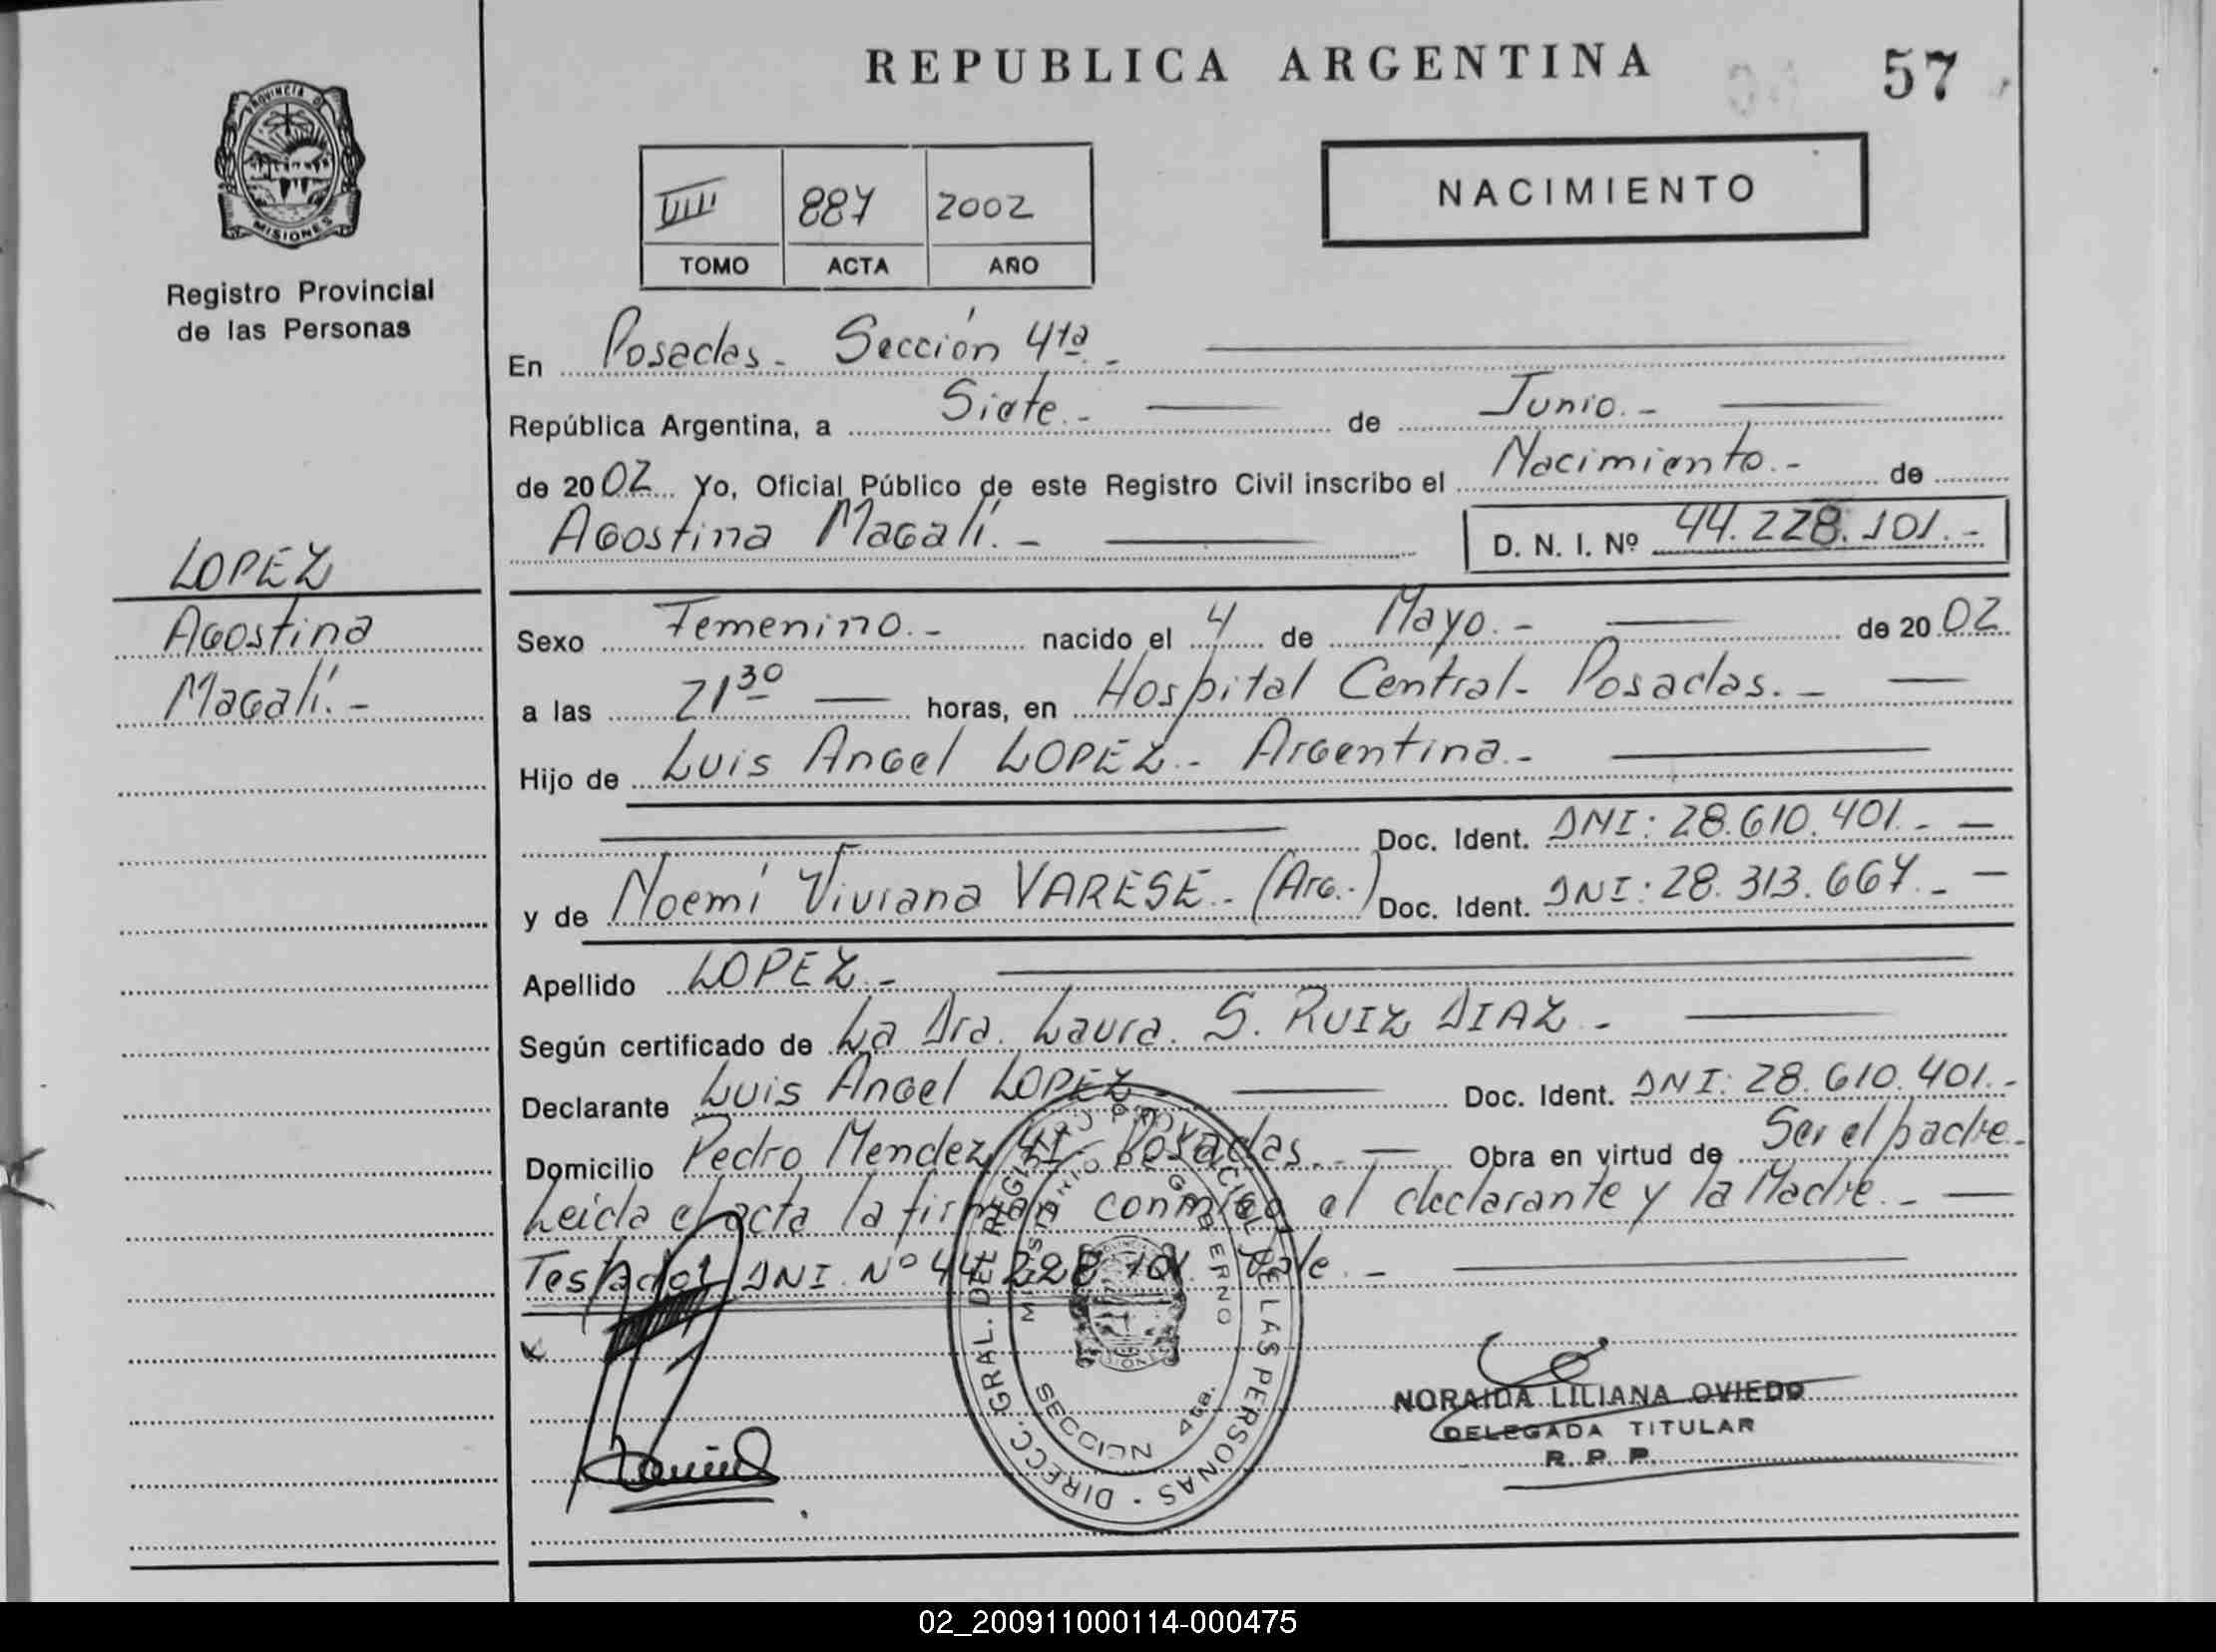 REPUBLICA ARGENTINA
57
PROVINCIA D
MISIONES
Registro Provincial
de las Personas
VIII 887 2002
TOMO ACTA AÑO
NACIMIENTO
En Posadas- Sección 4ta.-
República Argentina, a Siete.- de Junio.-
de 2002 Yo, Oficial Público de este Registro Civil inscribo el Nacimiento.- de
Agostina Magalí.- D. N. I. Nº 44.228.101.-
LOPEZ
Agostina
Magalí.-
Sexo Femenino.- nacido el 4 de Mayo.- de 2002
a las 21 30 horas, en Hospital Central- Posadas.-
Hijo de Luis Angel LOPEZ.- Argentina.-
Doc. Ident. DNI: 28.610.401.-
y de Noemí Viviana VARESE.- (Arg.-) Doc. Ident. DNI: 28.313.667.-
Apellido LOPEZ.-
Según certificado de La Dra. Laura. S. RUIZ DIAZ.-
Declarante Luis Angel LOPEZ- Doc. Ident. DNI: 28.610.401.-
Domicilio Pedro Mendez 41- Posadas.- Obra en virtud de Ser el padre-
Leida el acta la firman conmigo el declarante y la Madre.-
Testador DNI Nº 44.228.101. Vale.-
DIRECC. GRAL. DEL REGISTRO PROVINCIAL DE LAS PERSONAS
MINISTERIO DE GOBIERNO
SECCION 4ta.
NORAIDA LILIANA OVIEDO
DELEGADA TITULAR
R. P. P.
02_200911000114-000475